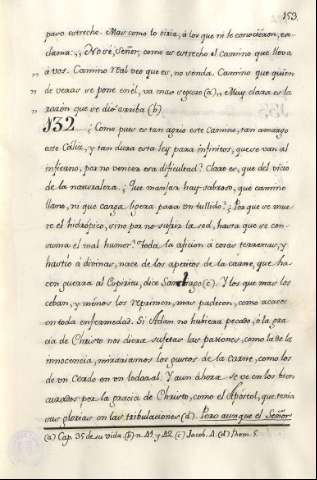 153.
paso estrecho. Mas como lo diria, á los que ni le conociéron, ex-
clama: ,, No sé, Señor, como es estrecho el camino que lleva
,, á vos. Camino real veo que es, no senda. Camino que quien
,, de veras se pone en él, va mas seguro (a),, Muy clara es la
razón que se dió arriba (b)
132. ¿Como pues es tan agrio este camino, tan amargo
este Cáliz, y tan dura esta ley para infinitos, que se van al
infierno, por no vencer esa dificultad? Claro es, que del vicio
de la naturaleza. ¿Que manjar hay sabroso, que camino
llano, ni que carga ligera para un tullido? ¿Por que se mue-
re el hidrópico, sino por no sufrir la sed, hasta que se con-
suma el mal humor? Toda la aficion á cosas terrenas, y
hastío á divinas, nace de los apetitos de la carne, que ha-
cen guerra al Espíritu, dice Santiago (c). Y los que mas los
ceban, y ménos los reprimen, mas padecen, como acaece
en toda enfermedad. Si Adan no hubiera pecado, ó la gra-
cia de Christo nos diera sujetas las pasiones, como la de la
inocencia, miráramos los gustos de la carne, como los
de un Cerdo en un lodazal. Y aun ahora se ve en los bien
curados por la gracia de Christo, como el Apóstol, que tenia
sus glorias en las tribulaciones (d). Pero aunque el Señor
(a) Cap. 35 de su vida. (b) n. 41. y 42. (c) Jacob. 4. (d) Rom. 5.